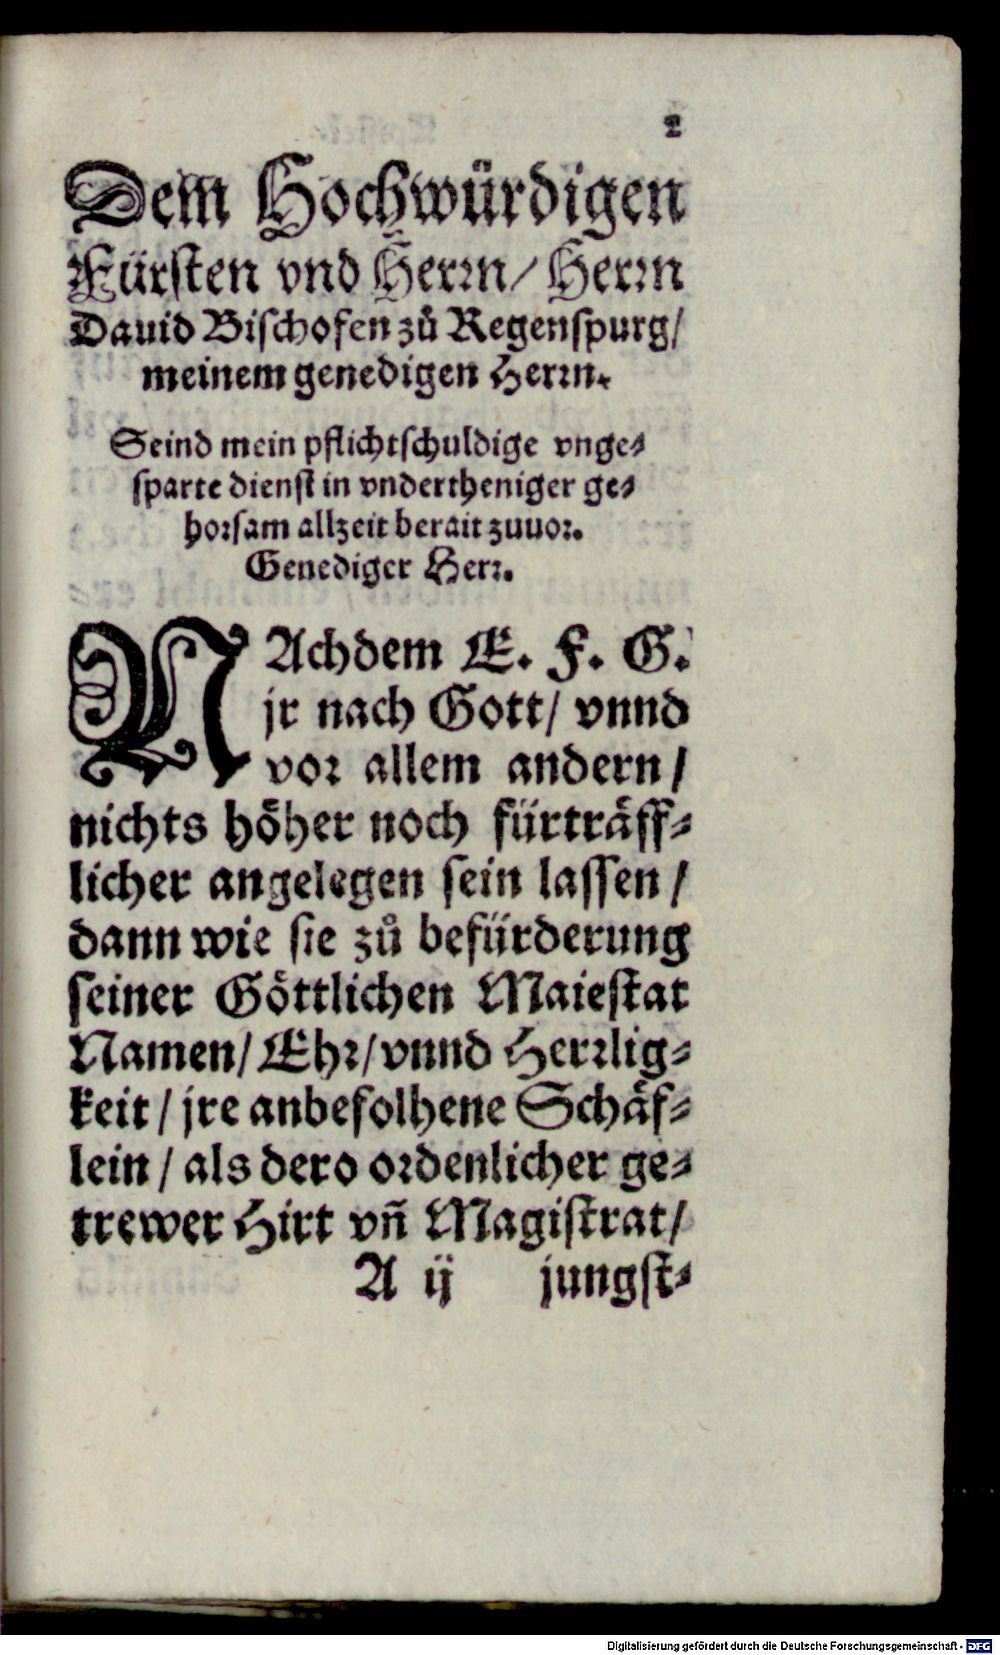 2
Dem Hochwürdigen
Fürsten vnd Herrn/ Herrn
Dauid Bischofen zů Regenspurg/
meinem genedigen Herrn.
Seind mein pflichtschuldige vnge-
sparte dienst in vndertheniger ge-
horsam allzeit berait zuuor.
Genediger Herr.
NAchdem E. F. G.
jr nach Gott/ vnnd
vor allem andern/
nichts höher noch fürträff-
licher angelegen sein lassen/
dann wie sie zů befürderung
seiner Göttlichen Maiestat
Namen/ Ehr/ vnnd Herrlig-
keit/ jre anbefolhene Schäf-
lein/ als dero ordenlicher ge-
trewer Hirt vñ Magistrat/
A ij jungst-
Digitalisierung gefördert durch die Deutsche Forschungsgemeinschaft - DFG